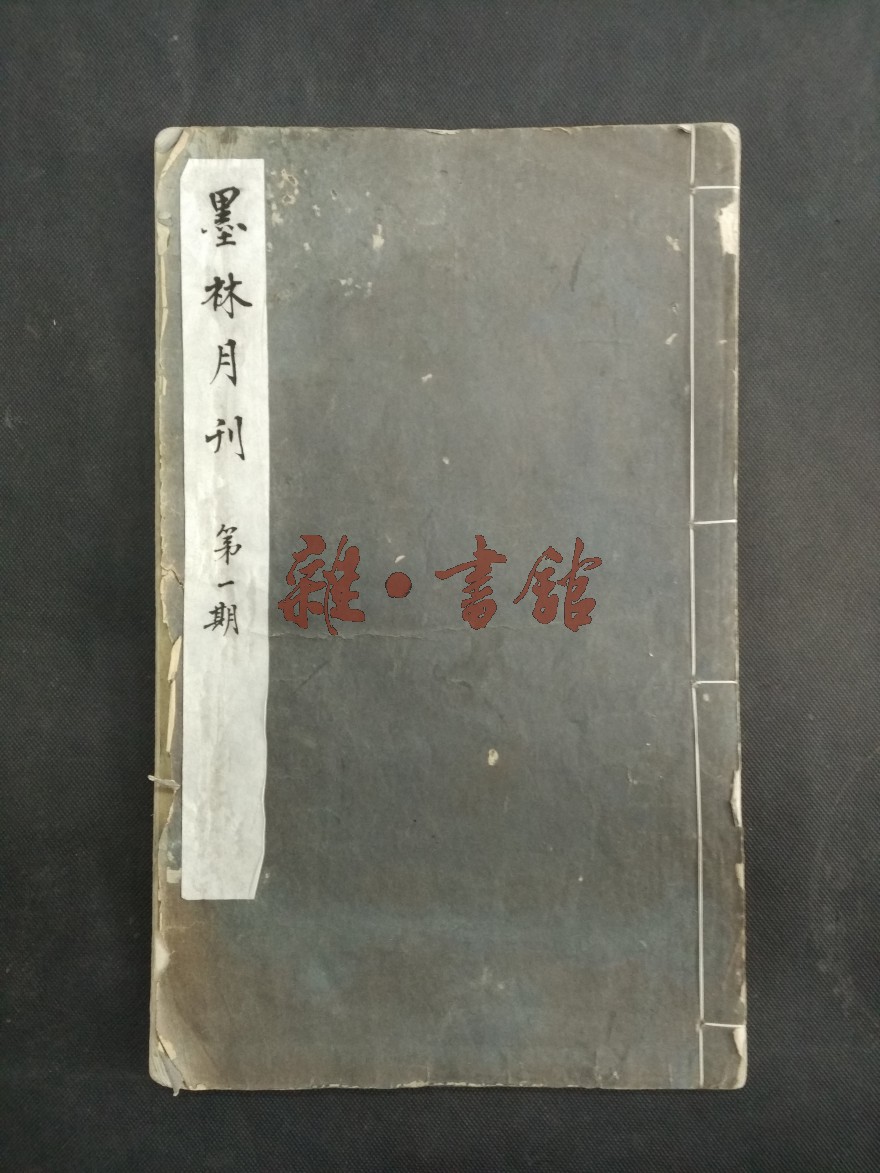 墨林月刊 第一期
雜·書館